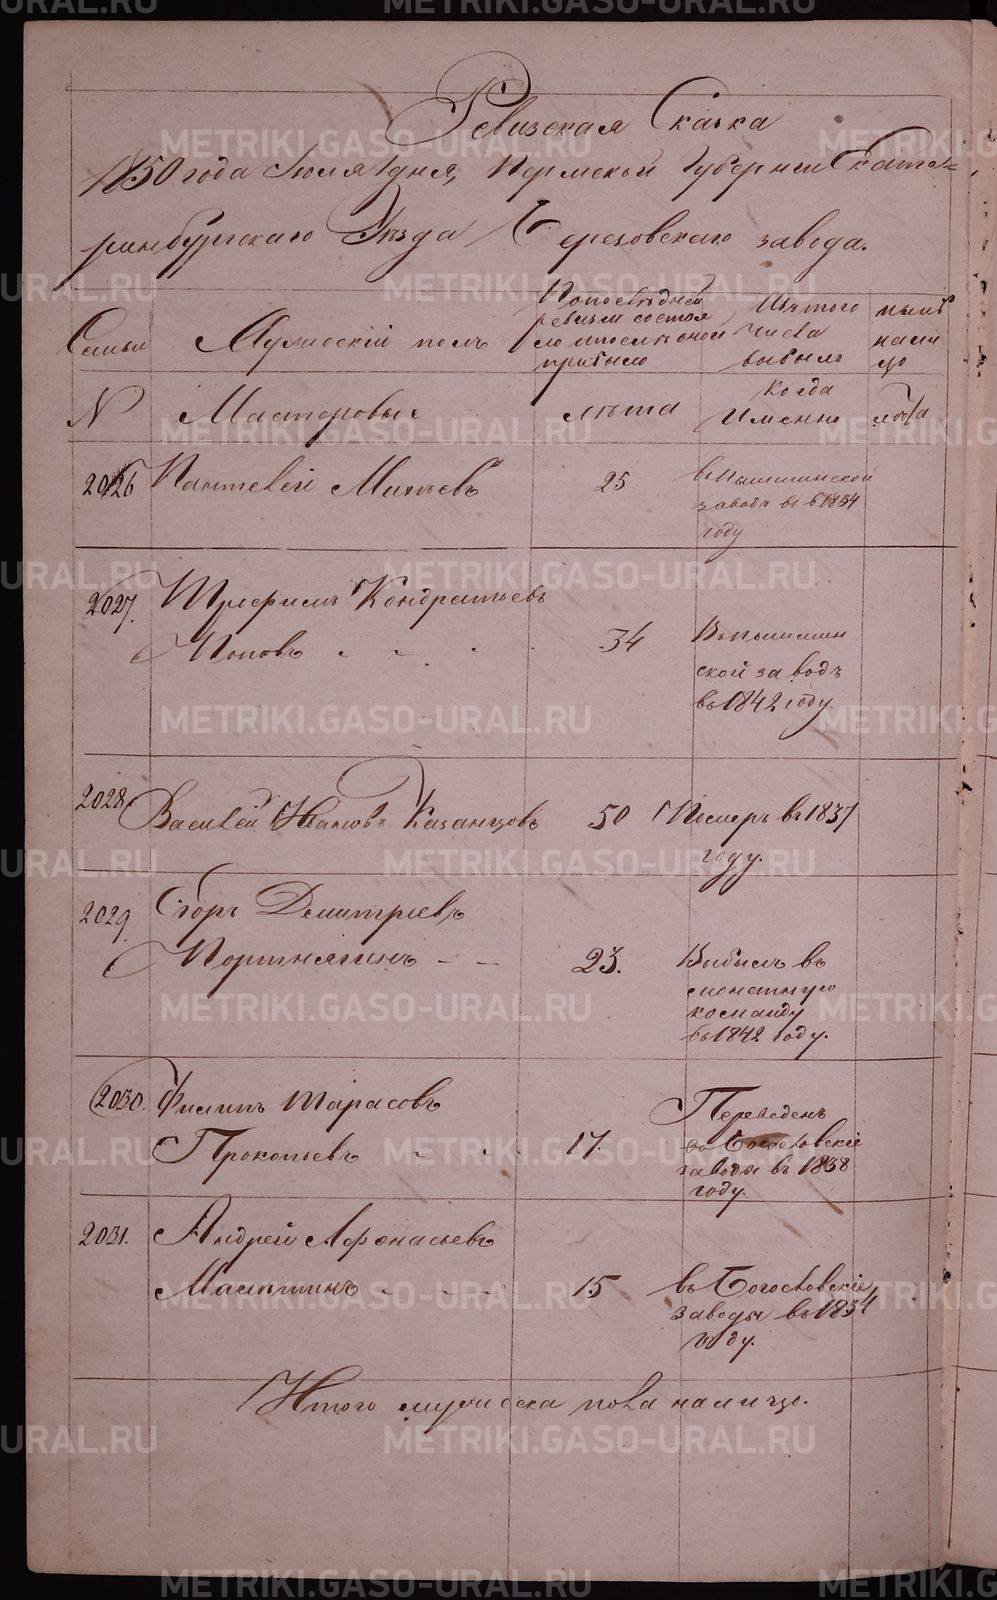 Ревизская Сказка
1850 года Июля 1 дня, Пермской Губернии Екате-
ринбургскаго Уѣзда Березовскаго завода.
Семьи
Мужескій полъ
По последней ревизіи состоя ло и после оной прибыло
Изъ того числа выбыло
ныне на ли цо
№ Мастеровые лѣта Когда Именно лѣта
2026 Пантелей Михѣевъ 25 в Пышминской
заводъ въ 1834
году
2027. Трофимъ Кондратьевъ
Поповъ - - - 34 Въ пышмин
ской заводъ
въ 1842 году.
2028. Василей Ивановъ Казанцовъ 50 Померъ въ 1837
году.
2029. Егоръ Дмитріевъ
Портнягинъ - - 23. Выбылъ въ
монетную
команду
въ 1842 году.
2030. Филипъ Тарасовъ
Прокопьевъ - - - 17. Переведенъ
во Богословскіе
заводы въ 1838
году.
2031. Андрей Афонасьевъ
- - - 15 въ Богословскіе
заводы въ 1834
году.
Итого мужеска пола на лицо.
METRIKI.GASO-URAL.RU